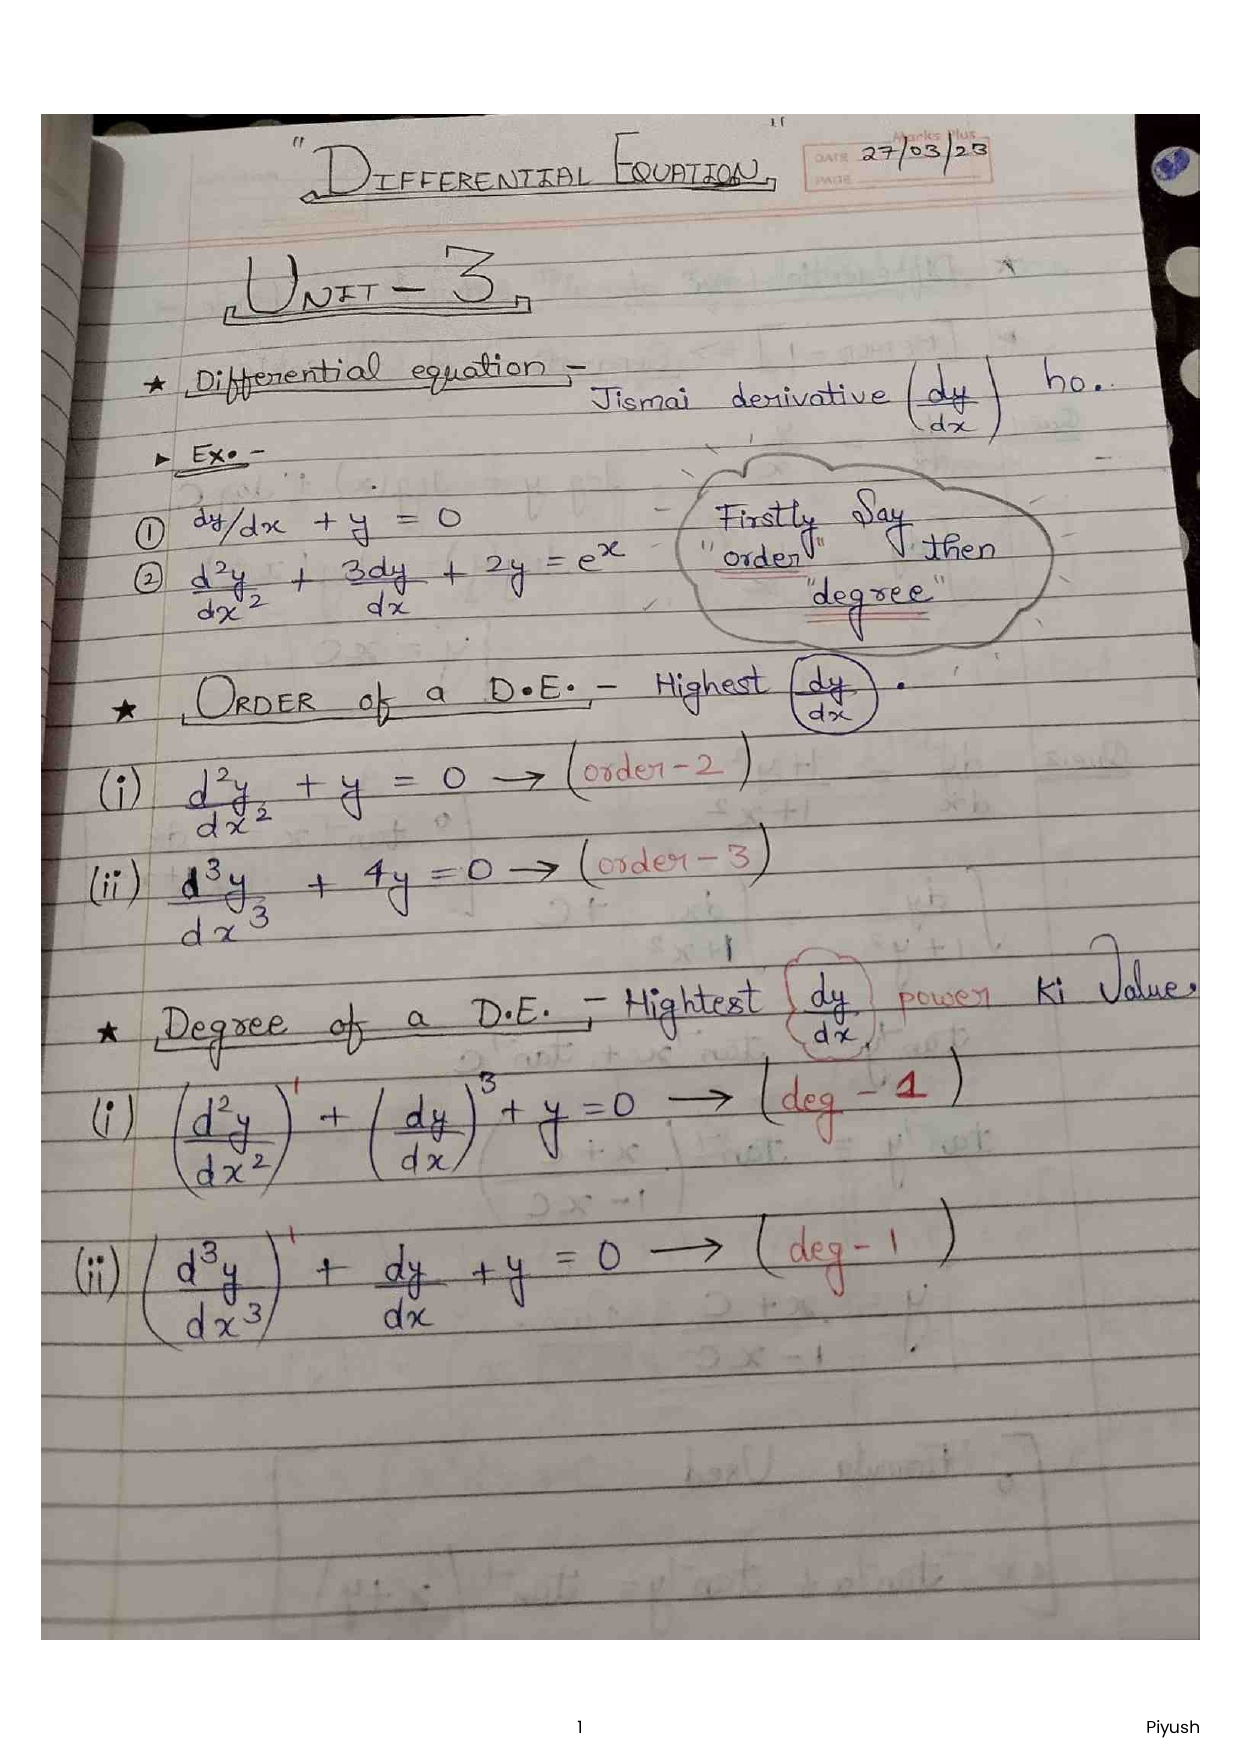 "DIFFERENTIAL EQUATION"
Marks Plus
DATE 27/03/23
PAGE
UNIT - 3
★ Differential equation :- Jismai derivative (dy/dx) ho.
▸ Ex. -
① dy/dx + y = 0
② d²y/dx² + 3dy/dx + 2y = eˣ
Firstly Say
"order" then
"degree"
★ ORDER of a D.E. - Highest (dy/dx).
(i) d²y/dx² + y = 0 → (order-2)
(ii) d³y/dx³ + 4y = 0 → (order-3)
★ Degree of a D.E. :- Hightest dy/dx power Ki Value.
(i) (d²y/dx²)¹ + (dy/dx)³ + y = 0 → (deg - 1)
(ii) (d³y/dx³)¹ + dy/dx + y = 0 → (deg - 1)
1
Piyush